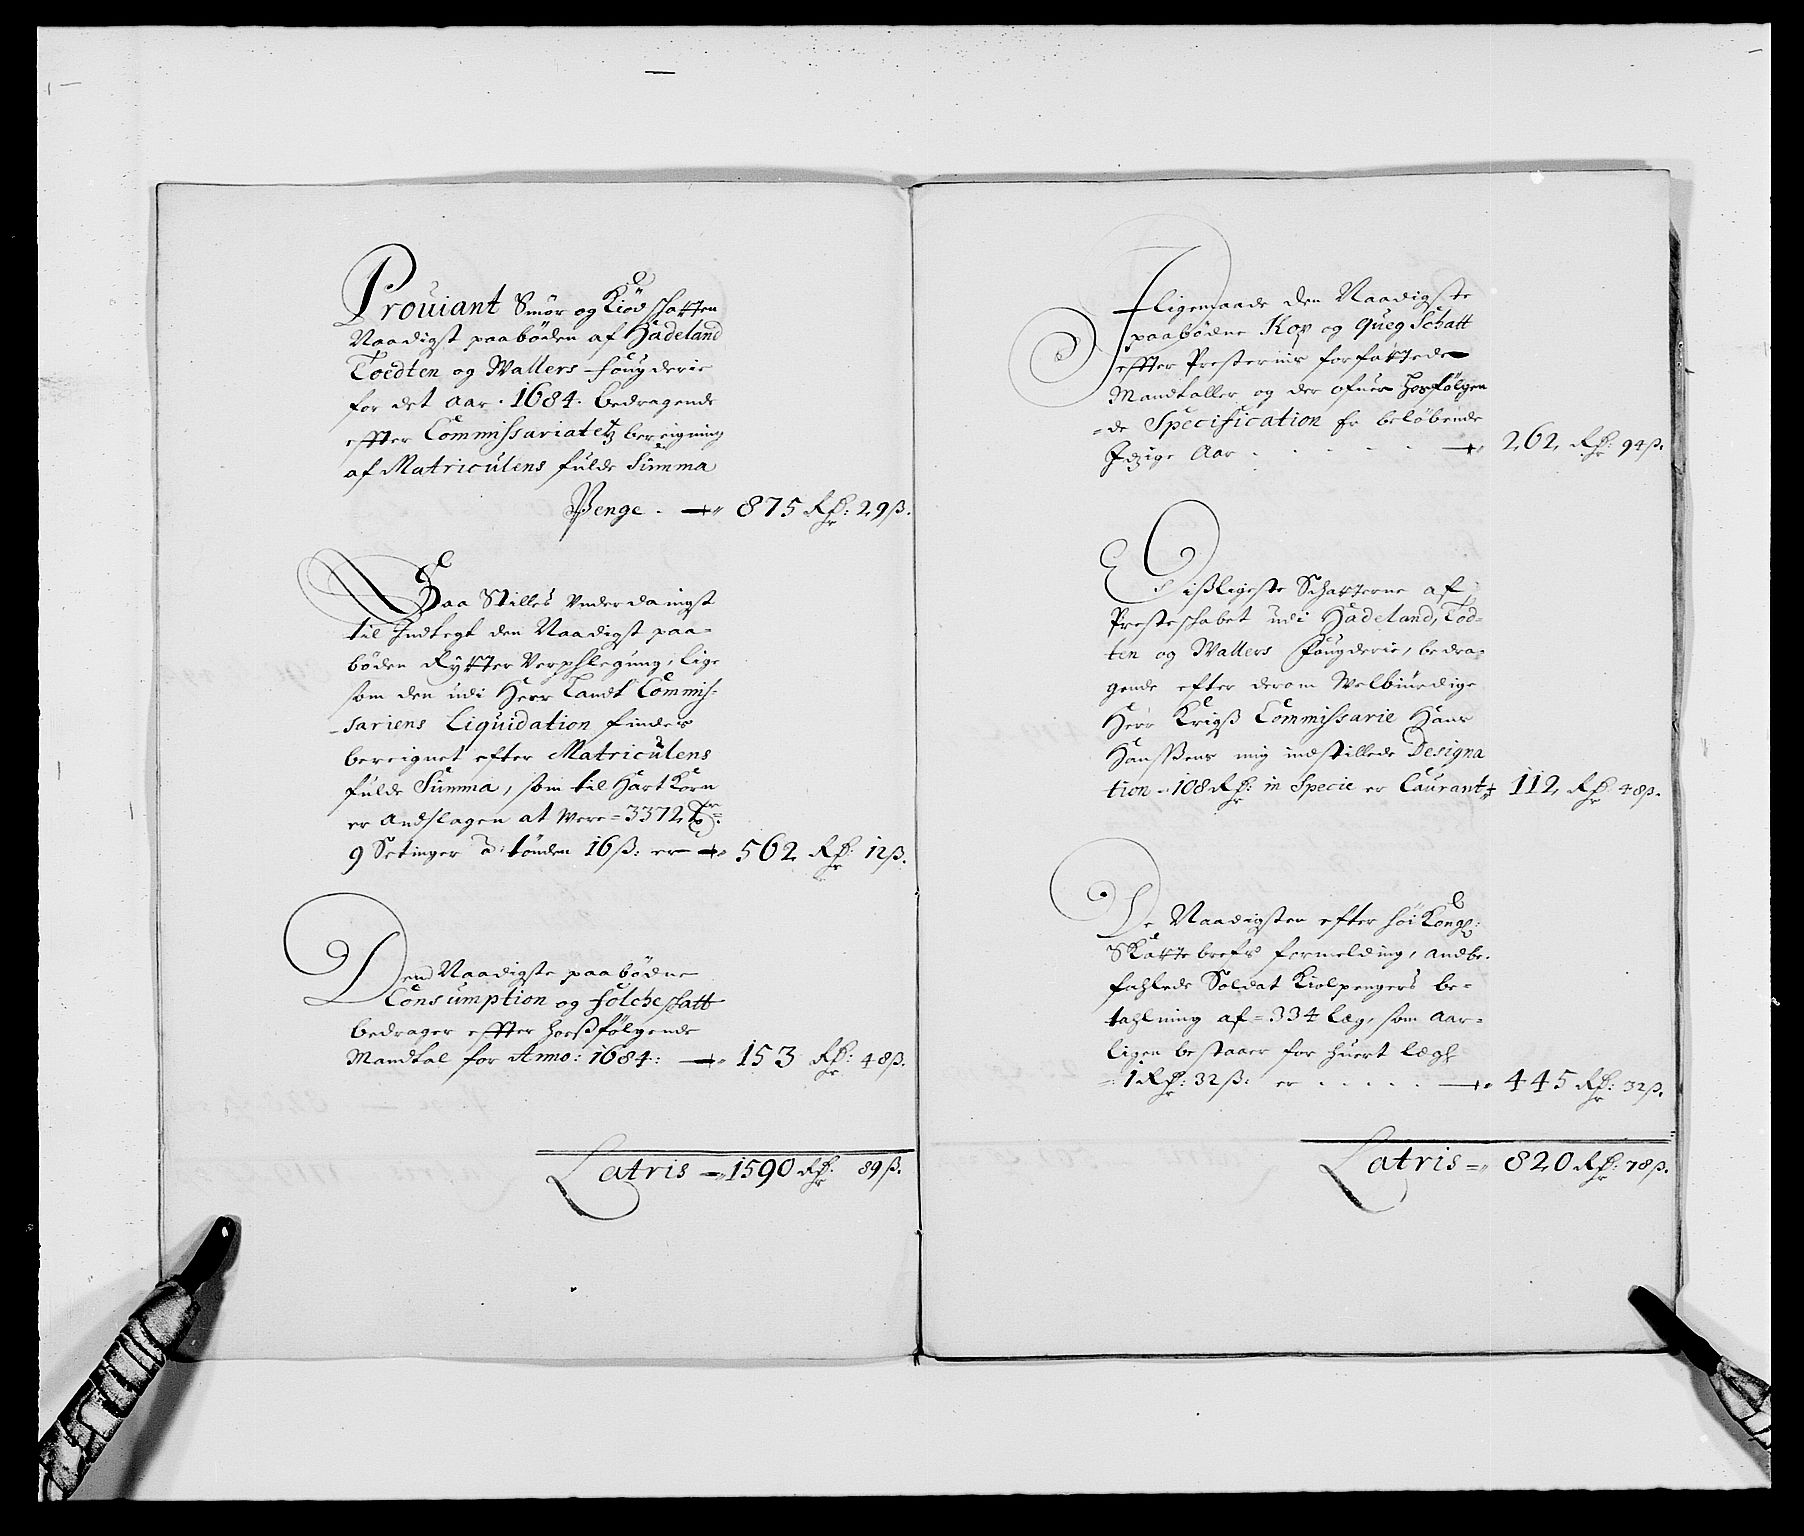 Prouiant Smör og Kiödschatten
Naadigst paaböden af Hadeland
Toedten og Wallers fougderie
for det Aar 1684. bedragende
effter Commissariatetz bereigning
af Matriculens fulde Summa
Penge. — 875 Rdr: 29 ß.
Saa Stilles Vnderdanigst
til Indtegt den Naadigst paa-
böden Rytter Verpflegung, lige
som den udi Herr Landt Commis-
sariens Liquidation findes
bereignet efter Matriculens
fulde Summa, som til Hart Korn
er Andslagen at Were = 3372 Tdr:
9 Setinger a tönden 16 ß: er — 562 Rdr: 12 ß.
Dend Naadigste paabödne
Consumption og folcheschatt
bedrager effter hosfölgende
Mandtal for Anno: 1684: — 153 Rdr: 48 ß.
Latris — 1590 Rdr: 89 ß.
Iligemaade den Naadigste
paabödne Kop og Queg Schatt
effter Presternis forfattede
Mandtaller og der ofuer hosfölgen
-de Specification er belöbende
Idzige Aar . . . . . — 262 Rdr: 94 ß.
Disligeste Schatterne af
Presteschabet udi Hadeland, Tod-
ten og Wallers fougderie, bedra-
gende efter derom Welbiurdige
Herr Krigs Commissarie Hans
Hanssens mig indstillede Designa
tion - 108 Rdr: in Specie er Courant 112 Rdr: 48 ß.
De Naadigsten efter höi Kongl:
Skatte brefs formelding, andbe-
fahlede Soldat Kiolpengers be-
tahlning af = 334 læg, som Aar-
ligen bestaaer for huert lægh
1 Rdr: 32 ß: er . . . . . — 445 Rdr: 32 ß.
Latris — 820 Rdr: 78 ß.